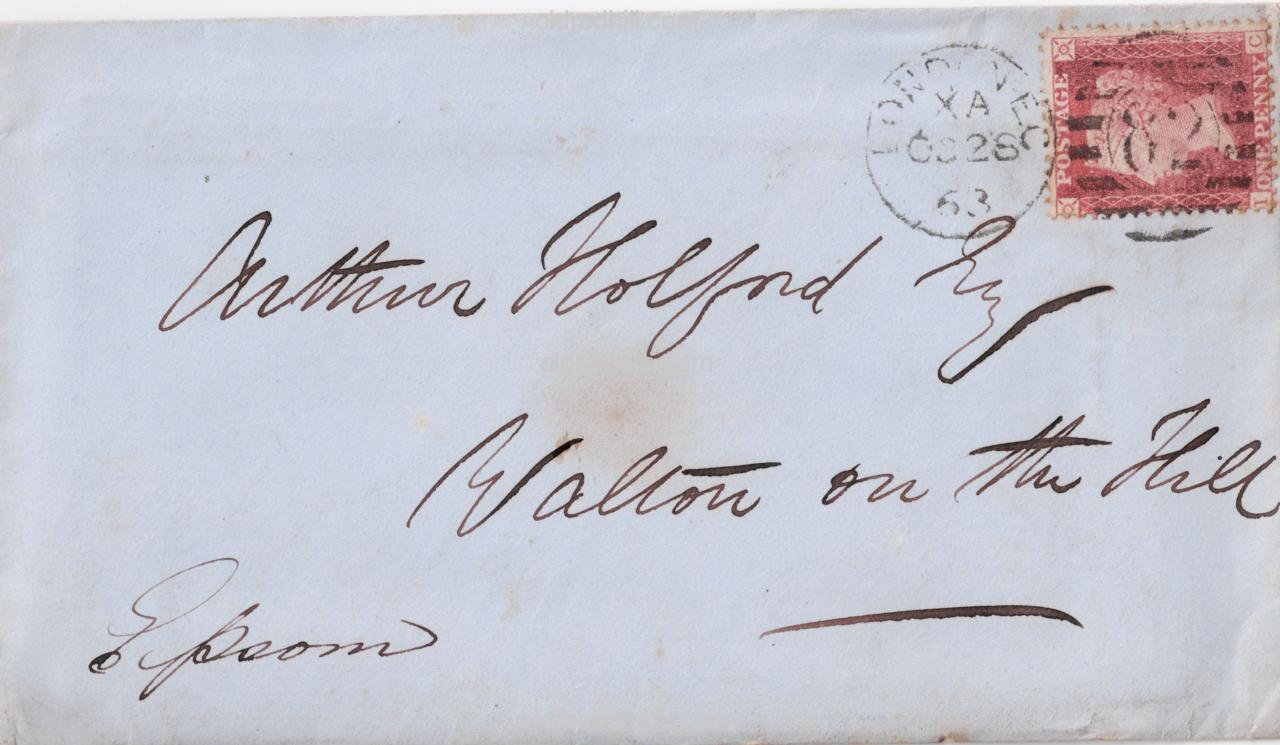 oldredhill.com
LONDON EC
XA
OC 28
63
POSTAGE
ONE PENNY
C
I
82
Arthur Holford Esq
oldredhill.com
Walton on the Hill
Epsom